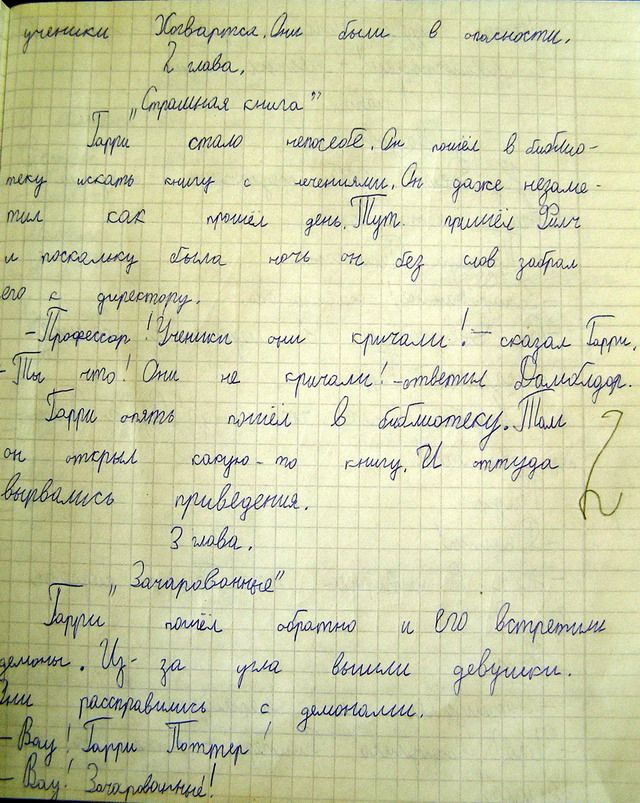 ученики Хогвартса. Они были в опасности.
2 глава.
„Страшная книга”
Гарри стало непосебе. Он пошёл в библио-
теку искать книгу с лечениями. Он даже незаме-
тил как прошёл день. Тут пришёл Филч
и поскальку была ночь он без слов забрал
его к директору.
-Профессор! Ученики они кричали! - сказал Гарри.
-Ты что! Они не кричали! -ответил Дамблдор.
Гарри опять пошёл в библиотеку. Там
он открыл какую-то книгу. И оттуда
вырвались приведения.
3 глава.
„Зачарованные”
Гарри пошёл обратно и его встретили
демоны. Из-за угла вышли девушки.
Они расправились с демонами.
- Вау! Гарри Поттер!
- Вау! Зачарованные!